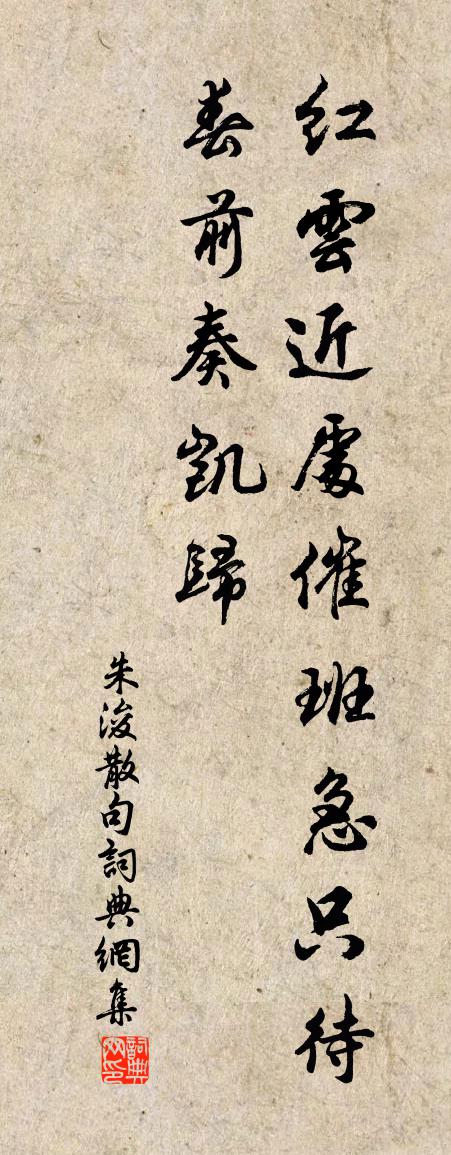 紅雲近處催班急只待
春前奏凱歸
朱浚散句詞典網集
詞典網印